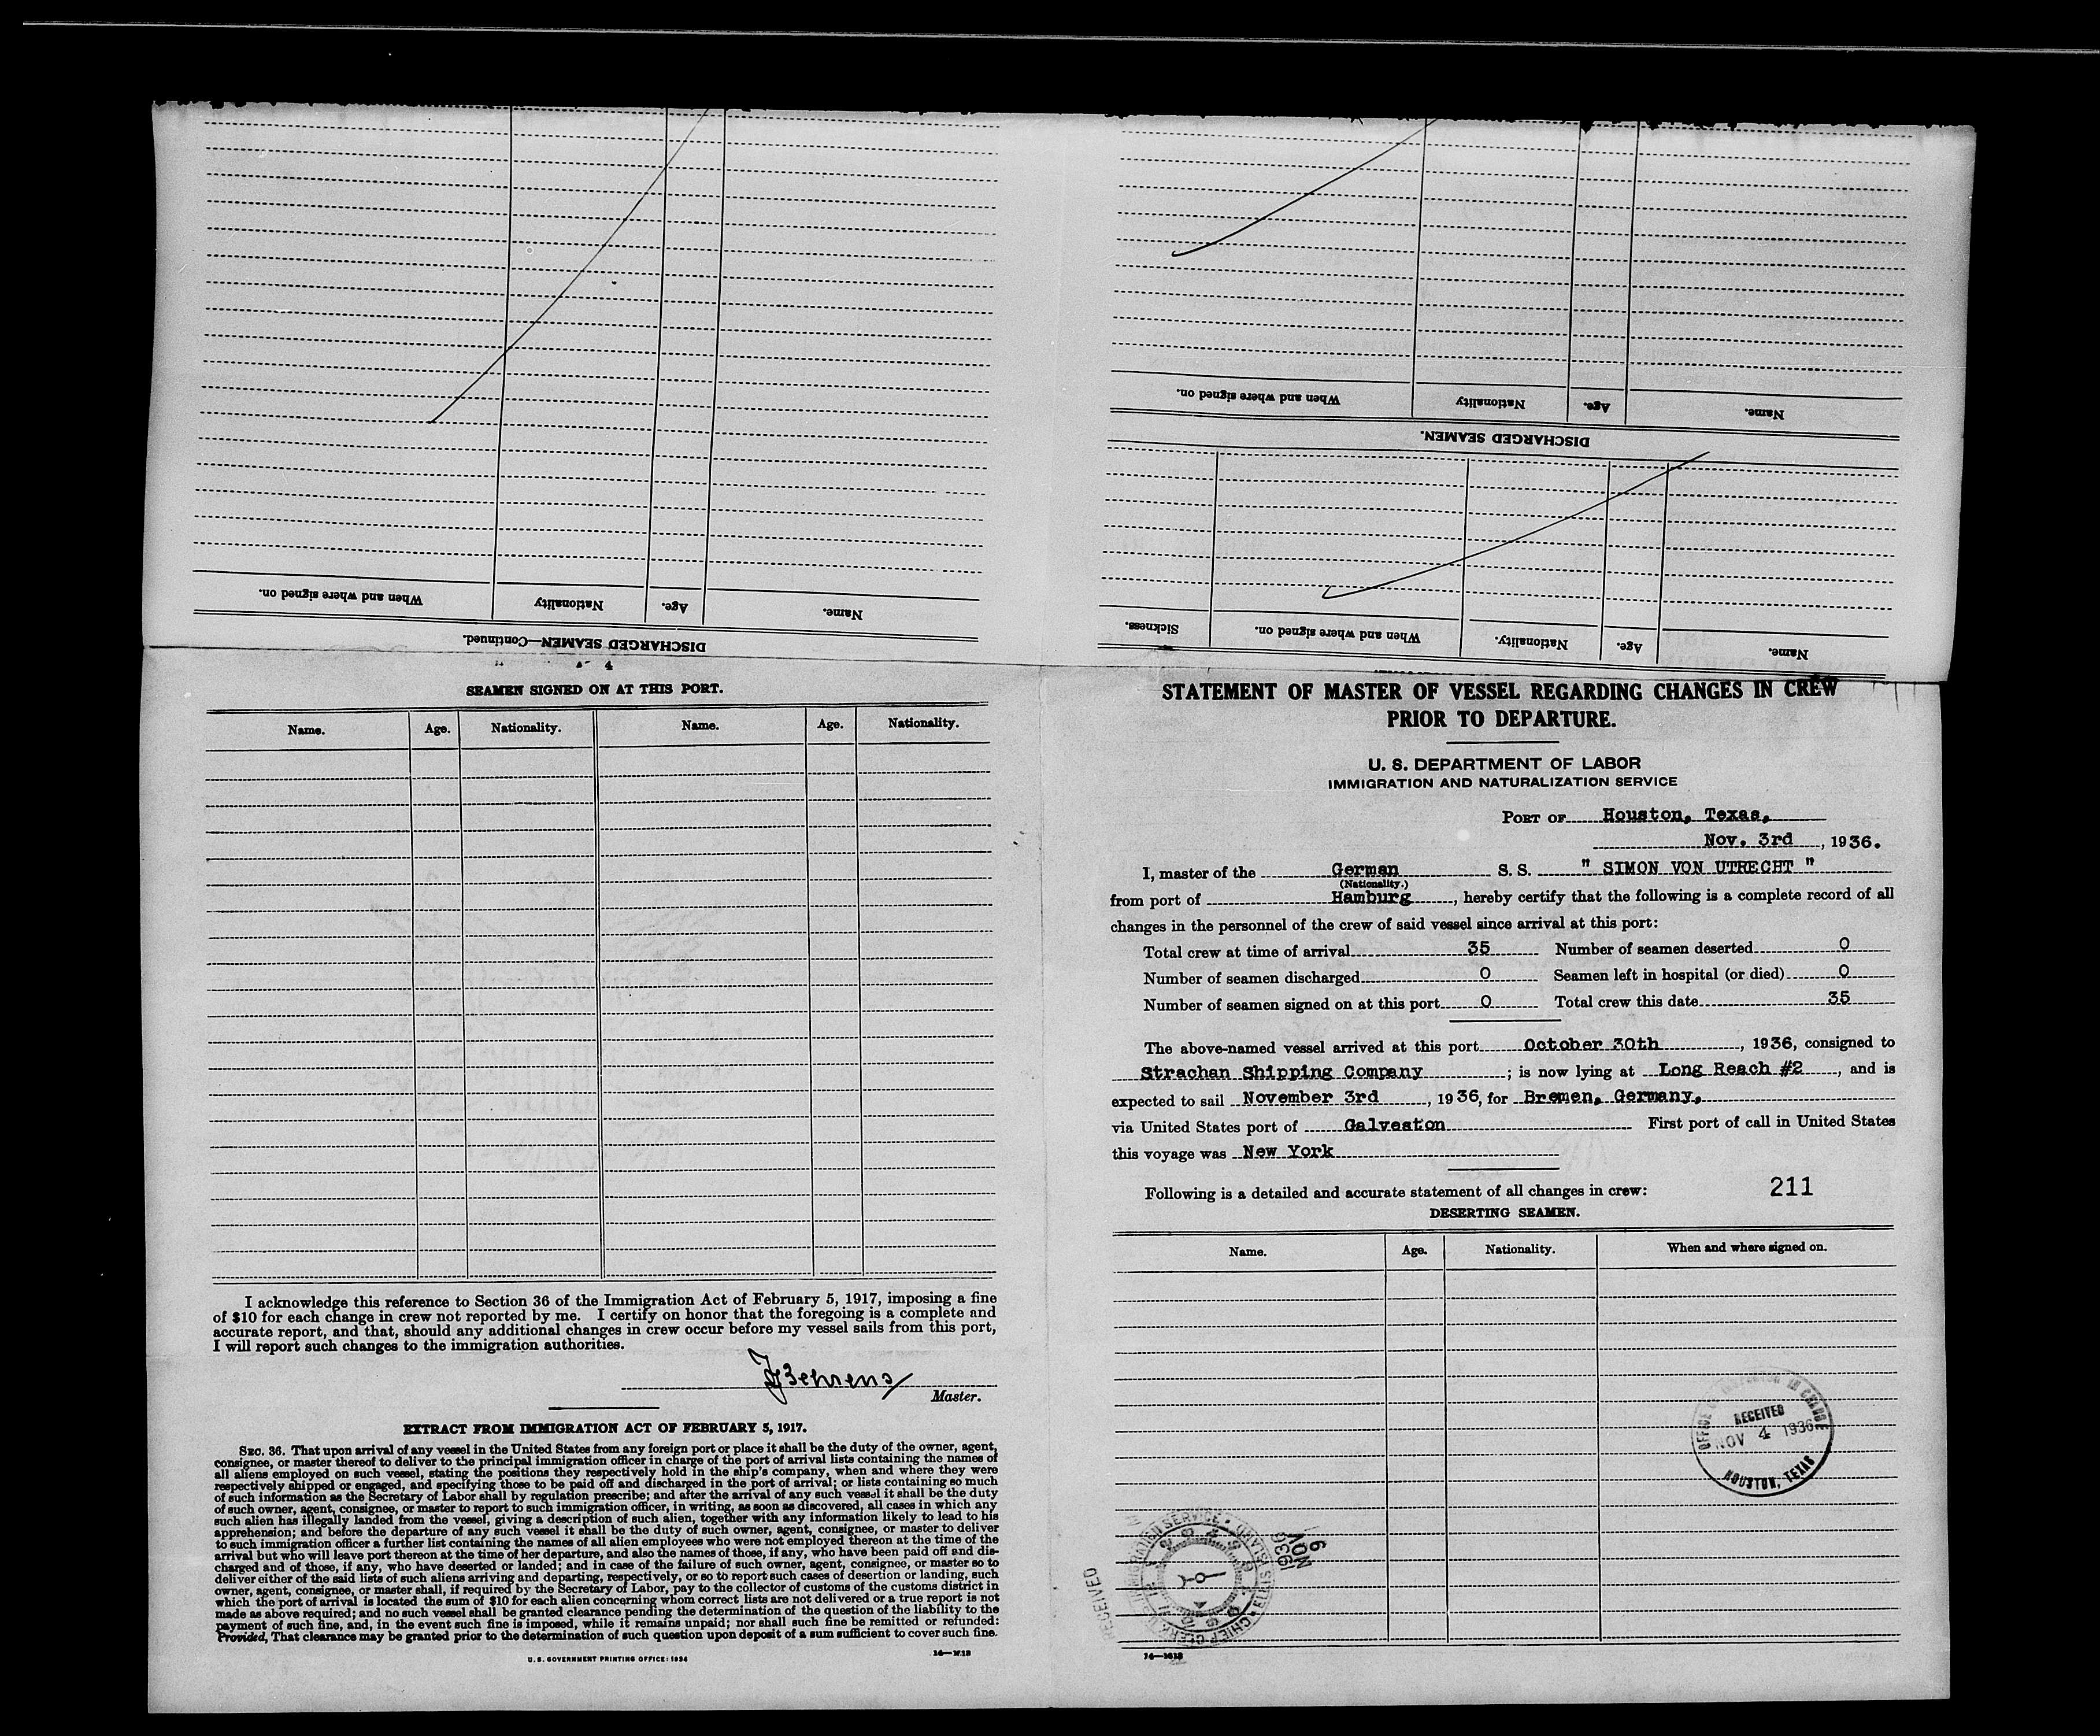 DISCHARGED SEAMEN—Continued.
Name. Age. Nationality When and where signed on.
Name. Age. Nationality. When and where signed on. Sickness.
DISCHARGED SEAMEN.
Name. Age. Nationality When and where signed on.
4
SEAMEN SIGNED ON AT THIS PORT.
Name. Age. Nationality. Name. Age. Nationality.
I acknowledge this reference to Section 36 of the Immigration Act of February 5, 1917, imposing a fine
of $10 for each change in crew not reported by me. I certify on honor that the foregoing is a complete and
accurate report, and that, should any additional changes in crew occur before my vessel sails from this port,
I will report such changes to the immigration authorities.
Behrens
Master.
EXTRACT FROM IMMIGRATION ACT OF FEBRUARY 5, 1917.
SEC. 36. That upon arrival of any vessel in the United States from any foreign port or place it shall be the duty of the owner, agent,
consignee, or master thereof to deliver to the principal immigration officer in charge of the port of arrival lists containing the names of
all aliens employed on such vessel, stating the positions they respectively hold in the ship's company, when and where they were
respectively shipped or engaged, and specifying those to be paid off and discharged in the port of arrival; or lists containing so much
of such information as the Secretary of Labor shall by regulation prescribe; and after the arrival of any such vessel it shall be the duty
of such owner, agent, consignee, or master to report to such immigration officer, in writing, as soon as discovered, all cases in which any
such alien has illegally landed from the vessel, giving a description of such alien, together with any information likely to lead to his
apprehension; and before the departure of any such vessel it shall be the duty of such owner, agent, consignee, or master to deliver
to such immigration officer a further list containing the names of all alien employees who were not employed thereon at the time of the
arrival but who will leave port thereon at the time of her departure, and also the names of those, if any, who have been paid off and dis-
charged and of those, if any, who have deserted or landed; and in case of the failure of such owner, agent, consignee, or master so to
deliver either of the said lists of such aliens arriving and departing, respectively, or so to report such cases of desertion or landing, such
owner, agent, consignee, or master shall, if required by the Secretary of Labor, pay to the collector of customs of the customs district in
which the port of arrival is located the sum of $10 for each alien concerning whom correct lists are not delivered or a true report is not
made as above required; and no such vessel shall be granted clearance pending the determination of the question of the liability to the
payment of such fine, and, in the event such fine is imposed, while it remains unpaid; nor shall such fine be remitted or refunded:
Provided, That clearance may be granted prior to the determination of such question upon deposit of a sum sufficient to cover such fine.
U. S. GOVERNMENT PRINTING OFFICE: 1934
STATEMENT OF MASTER OF VESSEL REGARDING CHANGES IN CREW
PRIOR TO DEPARTURE.
U. S. DEPARTMENT OF LABOR
IMMIGRATION AND NATURALIZATION SERVICE
PORT OF Houston, Texas,
Nov. 3rd, 1936.
I, master of the German S. S. " SIMON VON UTRECHT "
(Nationality.)
from port of Hamburg, hereby certify that the following is a complete record of all
changes in the personnel of the crew of said vessel since arrival at this port:
Total crew at time of arrival 35 Number of seamen deserted 0
Number of seamen discharged 0 Seamen left in hospital (or died) 0
Number of seamen signed on at this port 0 Total crew this date 35
The above-named vessel arrived at this port October 30th, 1936, consigned to
Strachan Shipping Company; is now lying at Long Reach #2, and is
expected to sail November 3rd, 1936, for Bremen, Germany,
via United States port of Galveston First port of call in United States
this voyage was New York
Following is a detailed and accurate statement of all changes in crew: 211
DESERTING SEAMEN.
Name. Age. Nationality. When and where signed on.
OFFICE IN CHARGE
RECEIVED
NOV 4 1936
HOUSTON, TEXAS
RECEIVED
1936 NOV 9